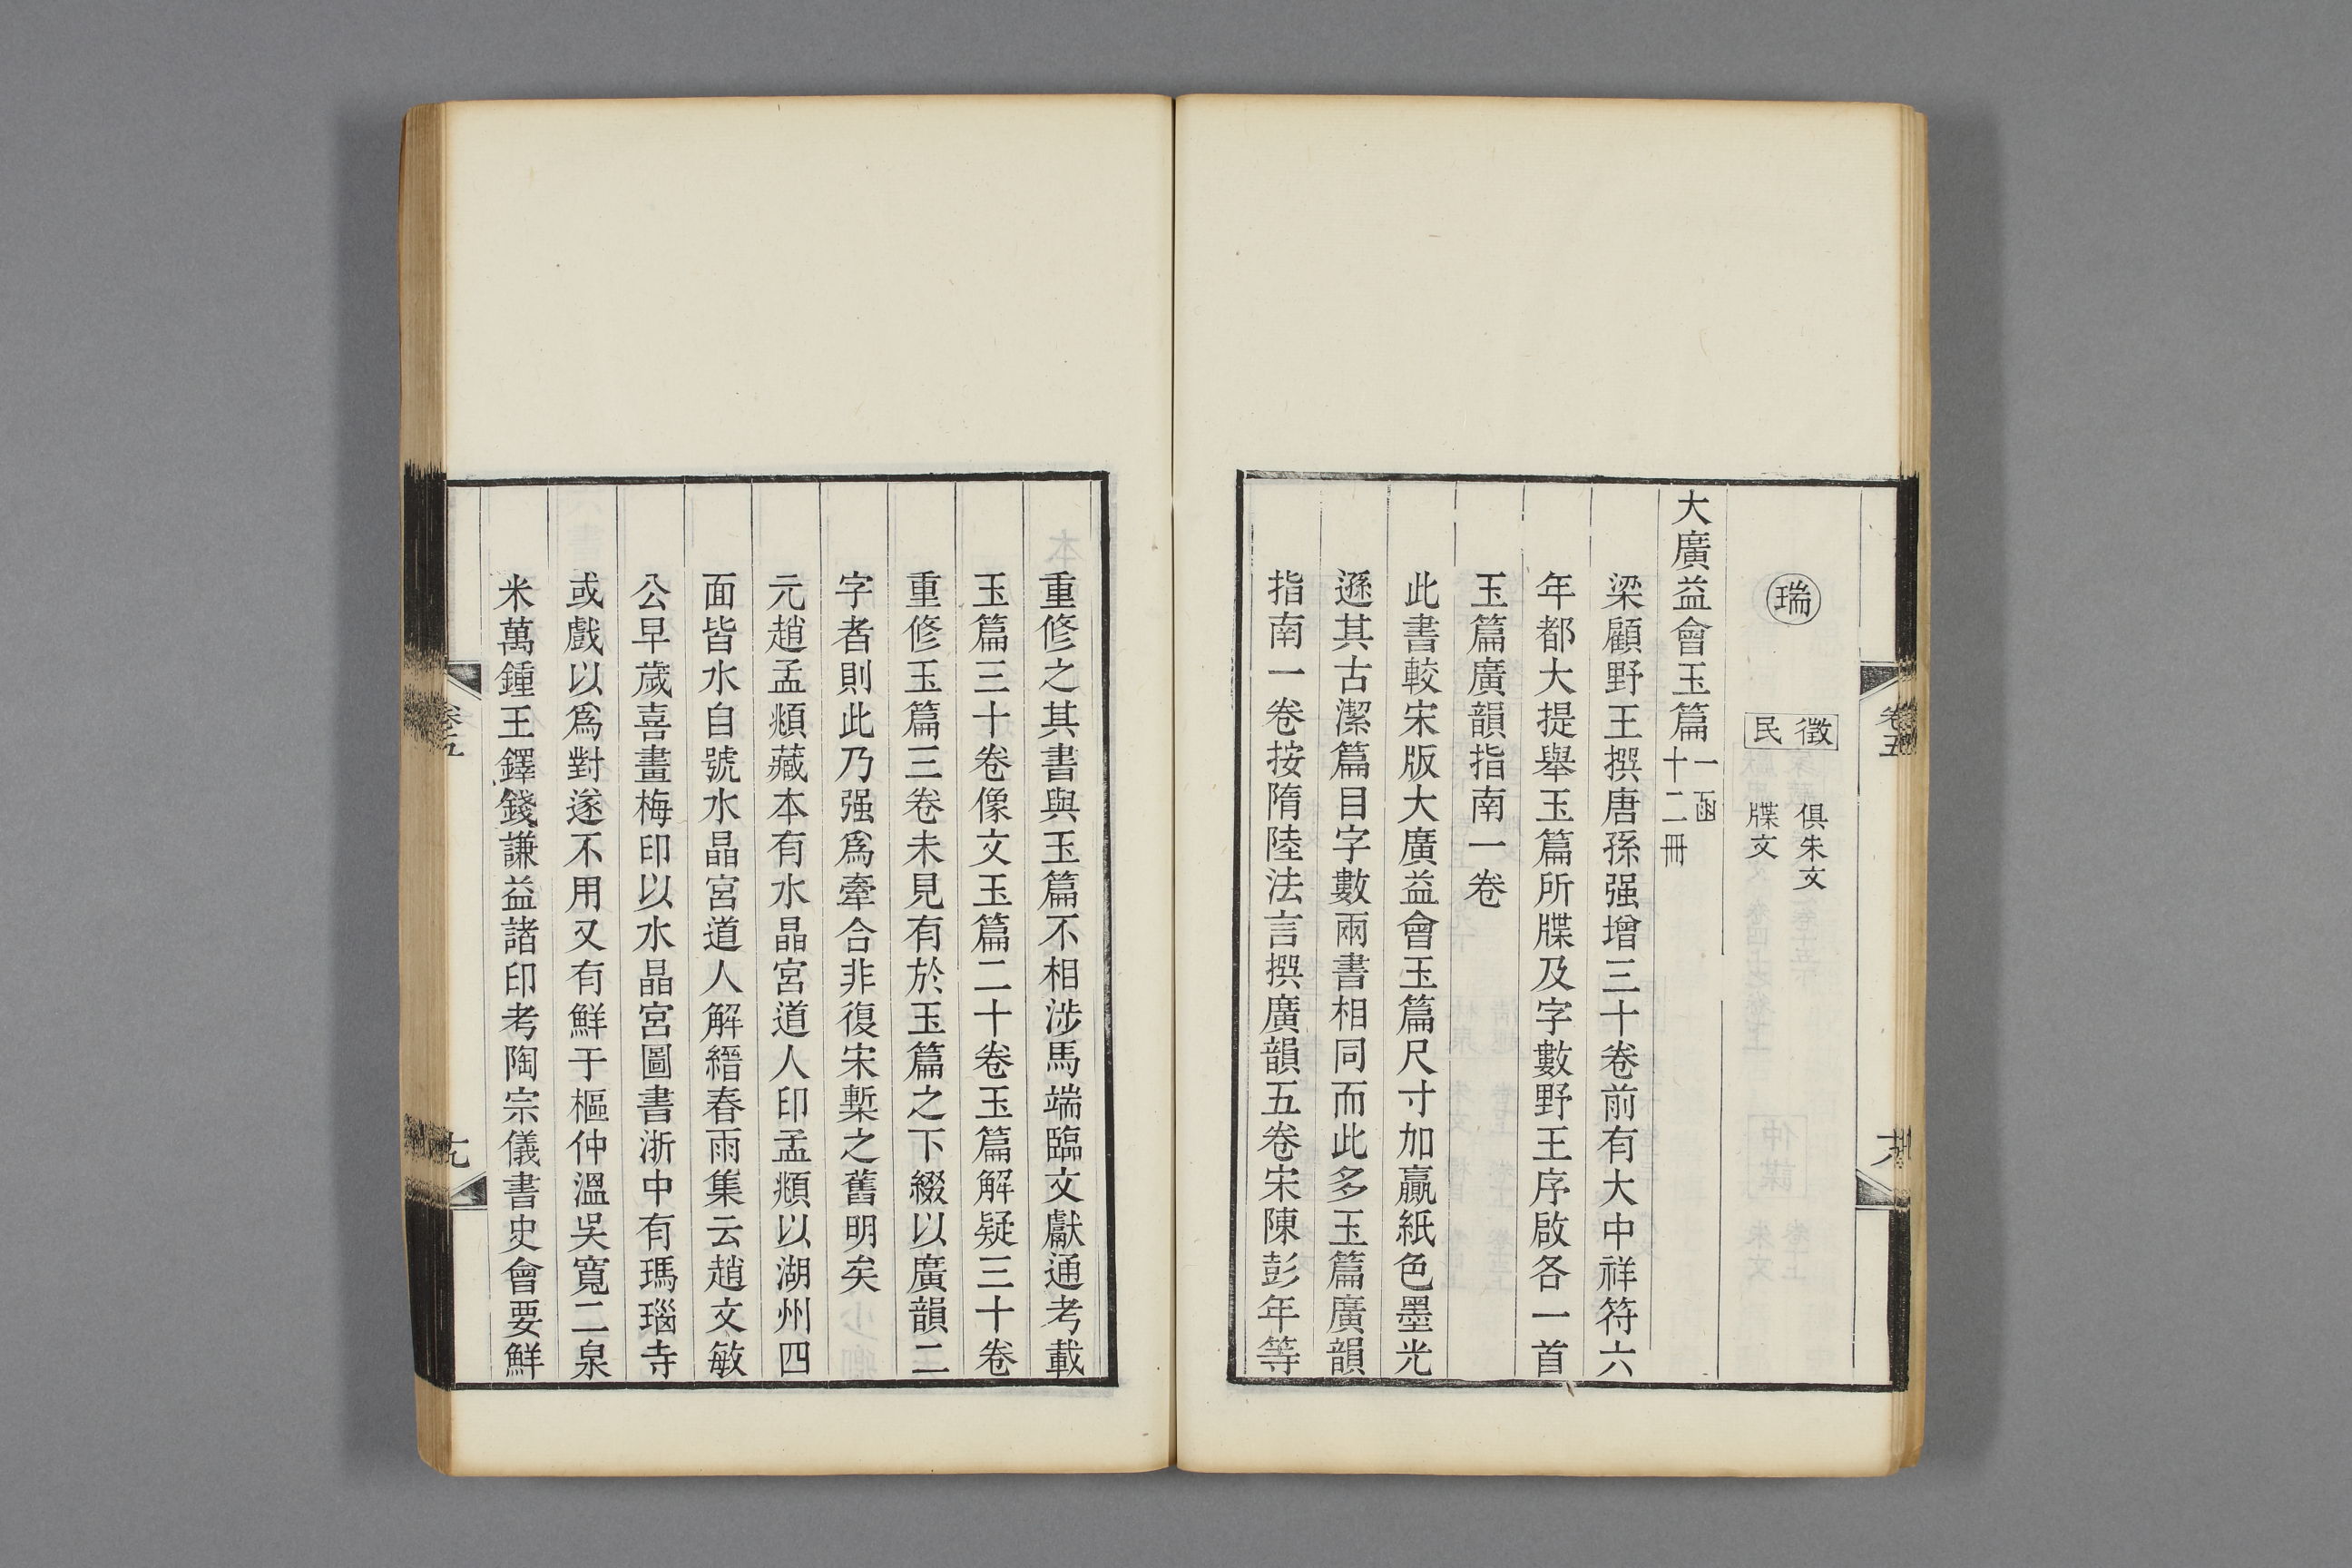 瑞
徵民 俱朱文 牒文
大廣益會玉篇 一函十二冊
梁顧野王撰唐孫强增三十卷前有大中祥符六
年都大提舉玉篇所牒及字數野王序啟各一首
玉篇廣韻指南一卷
此書較宋版大廣益會玉篇尺寸加贏紙色墨光
遜其古潔篇目字數兩書相同而此多玉篇廣韻
指南一卷按隋陸法言撰廣韻五卷宋陳彭年等
重修之其書與玉篇不相涉馬端臨文獻通考載
玉篇三十卷像文玉篇二十卷玉篇解疑三十卷
重修玉篇三卷未見有於玉篇之下綴以廣韻二
字者則此乃强爲牽合非復宋槧之舊明矣
元趙孟頫藏本有水晶宮道人印孟頫以湖州四
面皆水自號水晶宮道人解縉春雨集云趙文敏
公早歲喜畫梅印以水晶宮圖書浙中有瑪瑙寺
或戲以爲對遂不用又有鮮于樞仲溫吳寬二泉
米萬鍾王鐸錢謙益諸印考陶宗儀書史會要鮮
卷五